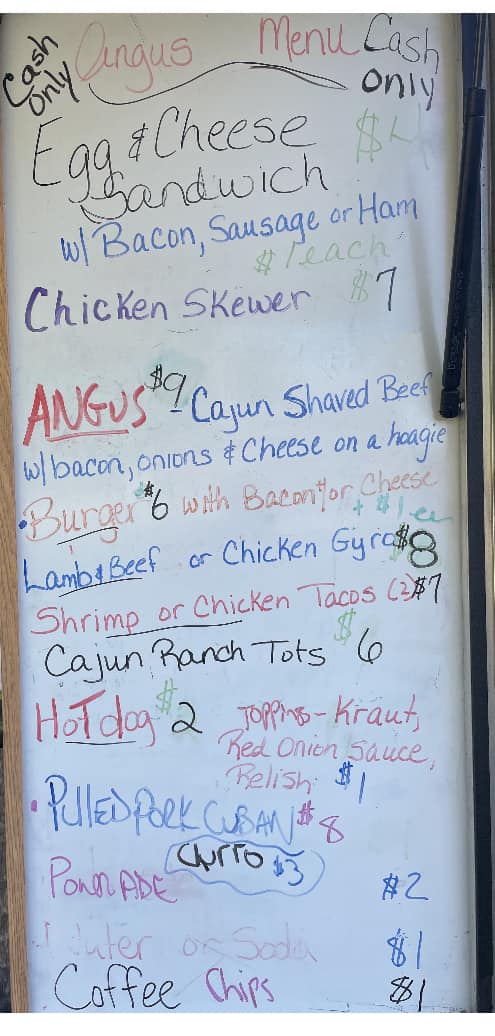 Cash Only Angus Menu Cash Only
Egg & Cheese $4
Sandwich
w/ Bacon, Sausage or Ham
$1 each
Chicken Skewer $7
ANGUS $9 - Cajun Shaved Beef
w/ bacon, onions & Cheese on a hoagie
• Burger $6 with Bacon &/or Cheese
+ $1 ea
Lamb & Beef or Chicken Gyro $8
Shrimp or Chicken Tacos (2) $7
Cajun Ranch Tots $6
HoT dog $2 TOPPINGS - Kraut,
Red Onion Sauce,
Relish $1
• PULLED PORK CUBAN $8
Churro $3
POWRADE $2
or Soda $1
Coffee Chips $1